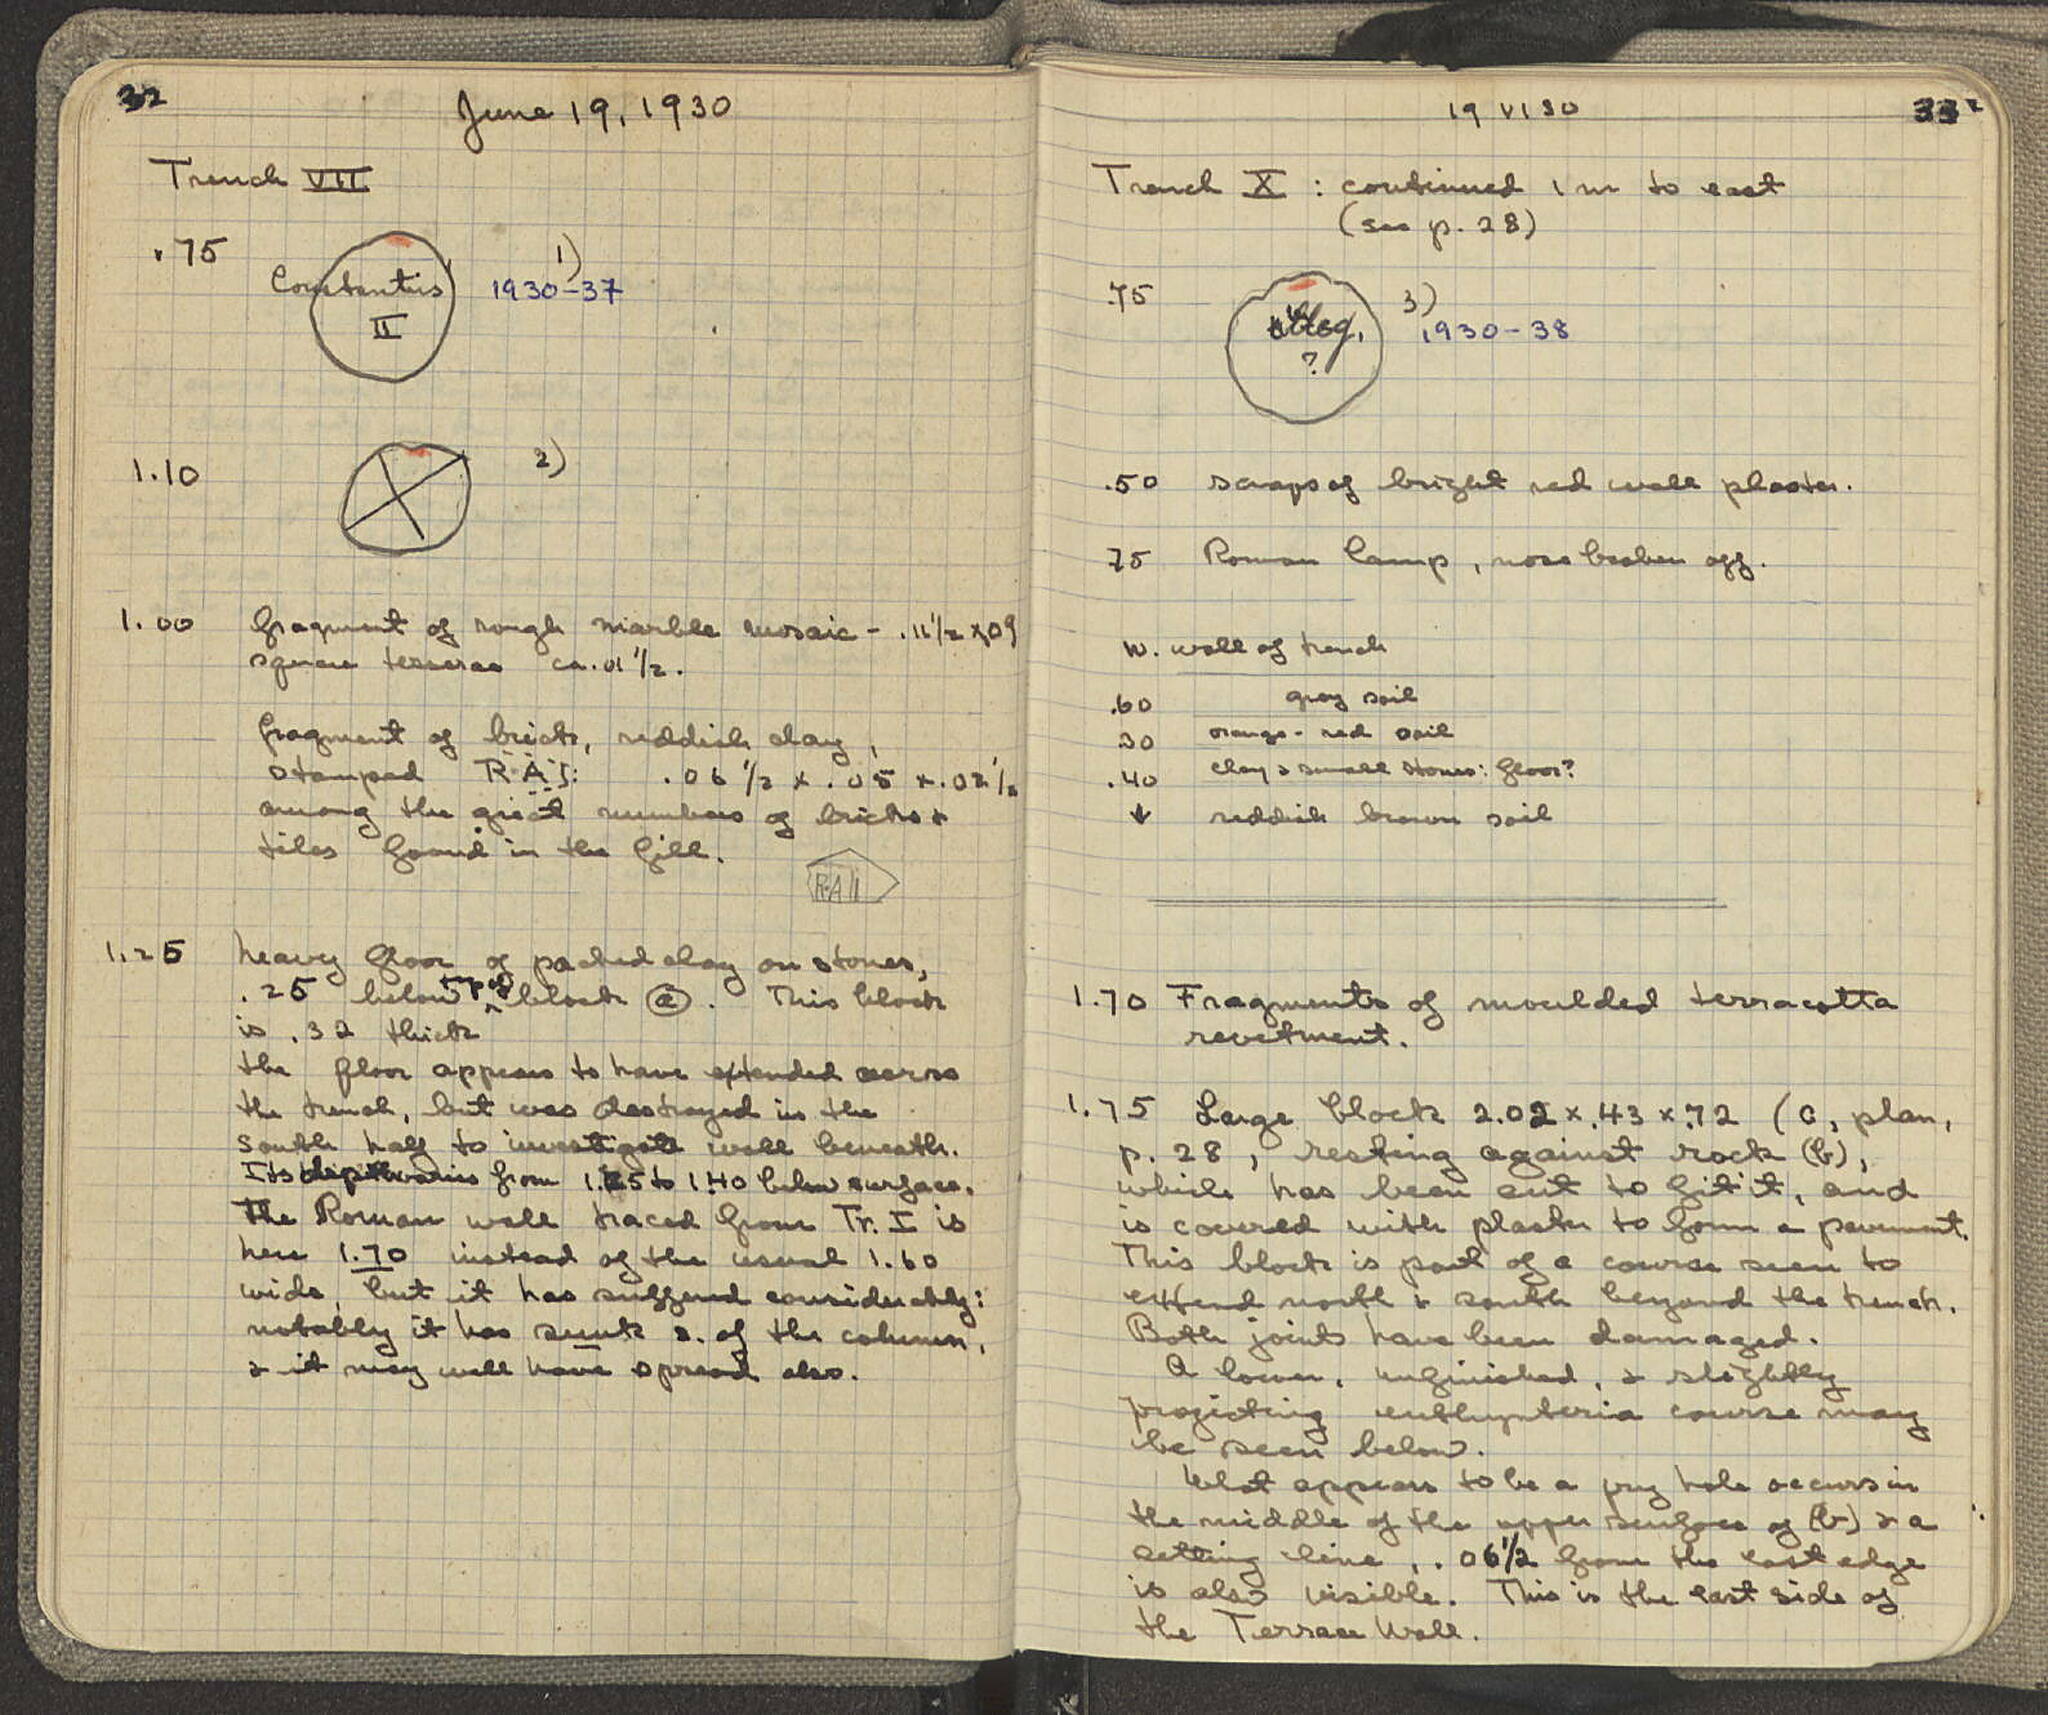 32
June 19, 1930
Trench VII
.75 Constantius II 1) 1930-37
1.10 2)
1.00 fragment of rough marble mosaic - .11 1/2 x .09
square tesserae ca. .01 1/2.
fragment of brick, reddish clay,
stamped R·A·I: .06 1/2 x .05 x .02 1/2
among the great numbers of bricks &
tiles found in the fill.
R·A II
1.25 heavy floor of packed clay on stones,
.25 below top of block (a). This block
is .32 thick
the floor appears to have extended across
the trench, but was destroyed in the
south half to investigate wall beneath.
Its depth varies from 1.25 to 1.40 below surface.
The Roman wall traced from Tr. I is
here 1.70 instead of the usual 1.60
wide, but it has suffered considerably:
notably it has sunk s. of the column,
& it may well have spread also.
19 VI 30
33
Trench X : continued 1 m to east
(see p. 28)
.75 illeg. ? 3) 1930-38
.50 scraps of bright red wall plaster.
.75 Roman lamp, nose broken off.
W. wall of trench
.60 gray soil
.30 orange-red soil
.40 clay & small stones: floor?
↓ reddish brown soil
1.70 Fragments of moulded terracotta
revetment.
1.75 Large block 2.02 x .43 x .72 (c, plan,
p. 28, resting against rock (b),
which has been cut to fit it, and
is covered with plaster to form a pavement.
This block is part of a course seen to
extend north & south beyond the trench.
Both joints have been damaged.
A lower, unfinished, & slightly
projecting euthynteria course may
be seen below.
What appears to be a pry hole occurs in
the middle of the upper surface of (b) & a
setting line, .06 1/2 from the east edge
is also visible. This is the east side of
the Terrace Wall.